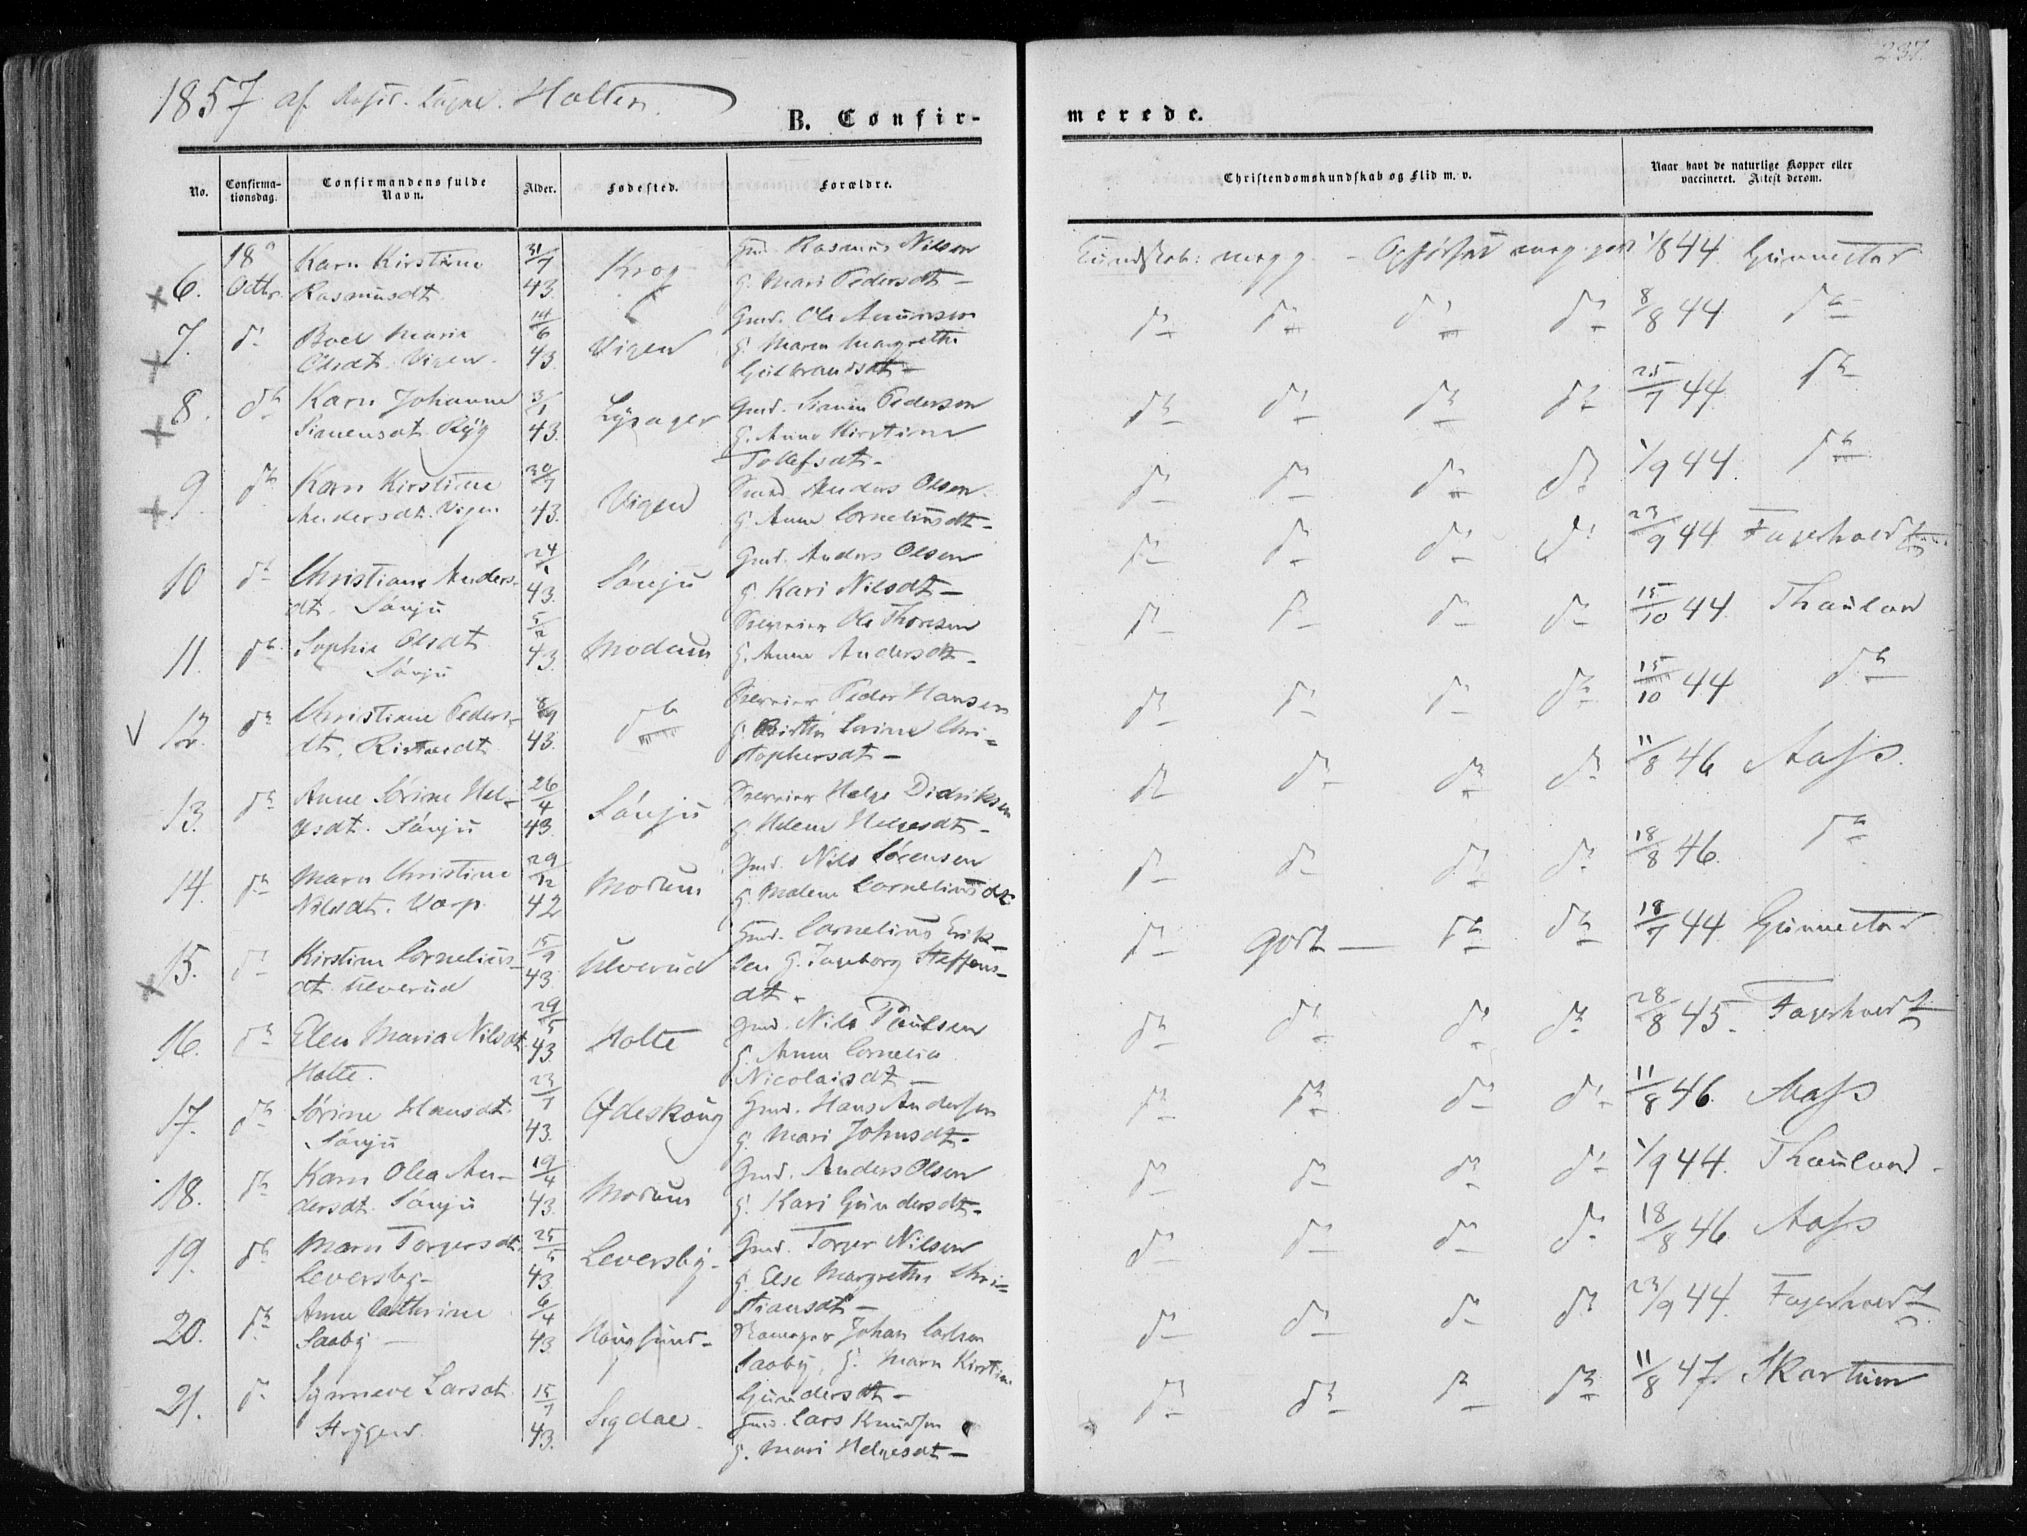 237.
1857 af Holter
B. Confir-
merede.
No.
Confirma-
tionsdag.
Confirmandens fulde
Navn.
Alder.
Fødested.
Forældre.
Christendomskundskab og Flid m. v.
Naar havt de naturlige Kopper eller
vaccineret. Attest derom.
6. 18de Octbr. Karn Kirstine Rasmusdt. 31/7 43. Krog Gmd. Rasmus Nilsen
G. Mari Pedersdt. Kundskab: meg. g. - Opførsel meg. godt 1/8 44 Gunnestad
7. do Boel Maria Olsdt. Vigen. 14/6 43. Vigen Gmd. Ole Amundsen
G. Maren Margrethe
Gulbrandsdt. do do do do 8/8 44 do
8. do Karn Johanne Simensdt. Ryg 3/1 43. Lysager Gmd. Simen Pedersen
G. Anne Kirstine
Tollefsdt. do do do do 25/7 44. do
9. do Karn Kirstine Andersdt. Vigen 30/7 43. Vigen Anders Olsen.
G. Anne Corneliusdt. do do do do 1/9 44. do
10 do Christiane Anders-
dt. Sønju 24/1 43. Sønju Gmd. Anders Olsen
G. Kari Nilsdt. do do do do 23/9 44. Fagerhoedt
11. do Sophie Olsdt. Sønju 5/2 43. Modum Ole Thoresen
G. Anne Andersdt. do do do do 15/10 44. Thaulow
12. do Christiane Peders-
dt. 43. do Peder Hansen
G. Chri-
stophersdt. do do do do 15/10 44 do
13. do Anne Sørine Hel-
gesdt. Sønju 26/4 43. Sønju Helge Didriksen
G. Helene Helgesdt. do do do do 11/8 46 Aass.
14. do Maren Christine
Nilsdt. Varp. 29/12 42 Modum Gmd. Nils Sørensen
G. Malene Corneliusdt. do do do do 18/8 46. do
15. do Kirstine Cornelius-
dt. Ulverud 15/9 43. Ulverud Gmd. Cornelius Erik-
sen G. Ingeborg Steffens-
dt. do godt do do 18/7 44 Gunnestad
16. do Elen Maria Nilsdt.
Holte. 29/5 43 Holte Gmd. Nils Paulsen
G. Anne Cornelia
Nicolaisdt. do do do do 28/8 45. Fagerhoedt
17. do Sørine Hansdt.
Sønju 23/7 43. Ødeskoug Gmd. Hans Andersen
G. Mari Johnsdt. do do do do 11/8 46. Aass
18. do Karn Olea An-
dersdt. Sønju 19/4 43. Modum Gmd. Anders Olsen
G. Kari Gundersdt. do do do do 1/9 44. Thaulow
19. do Maren Torgersdt.
Leversby 25/5 43. Leversby Gmd. Torger Nilsen
G. Else Margrethe Chri-
stiansdt. do do do do 18/8 46 Aass
20. do Anne Cathrine
Saaby 6/4 43. Kongsund Johan Carlsen
Saaby, G. Maren Kirstine
Gundersdt. do do do do 23/9 44. Fagerhoedt
21. do Synneve Larsdt.
15/7 43. Sigdal. Gmd. Lars Knudsen
G. Mari Helgesdt. do do do do 11/8 47. Skartum